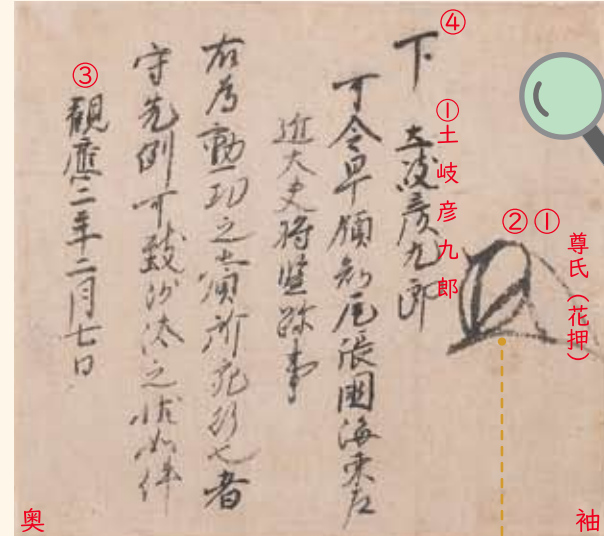 尊氏（花押）
①
②
袖
④
下 土岐彦九郎
①土岐彦九郎
可令早領知尾張國海東左
近大夫将監跡事
右為勲功之賞所宛行也者
守先例可致沙汰之状如件
③
觀應二年二月七日
奥